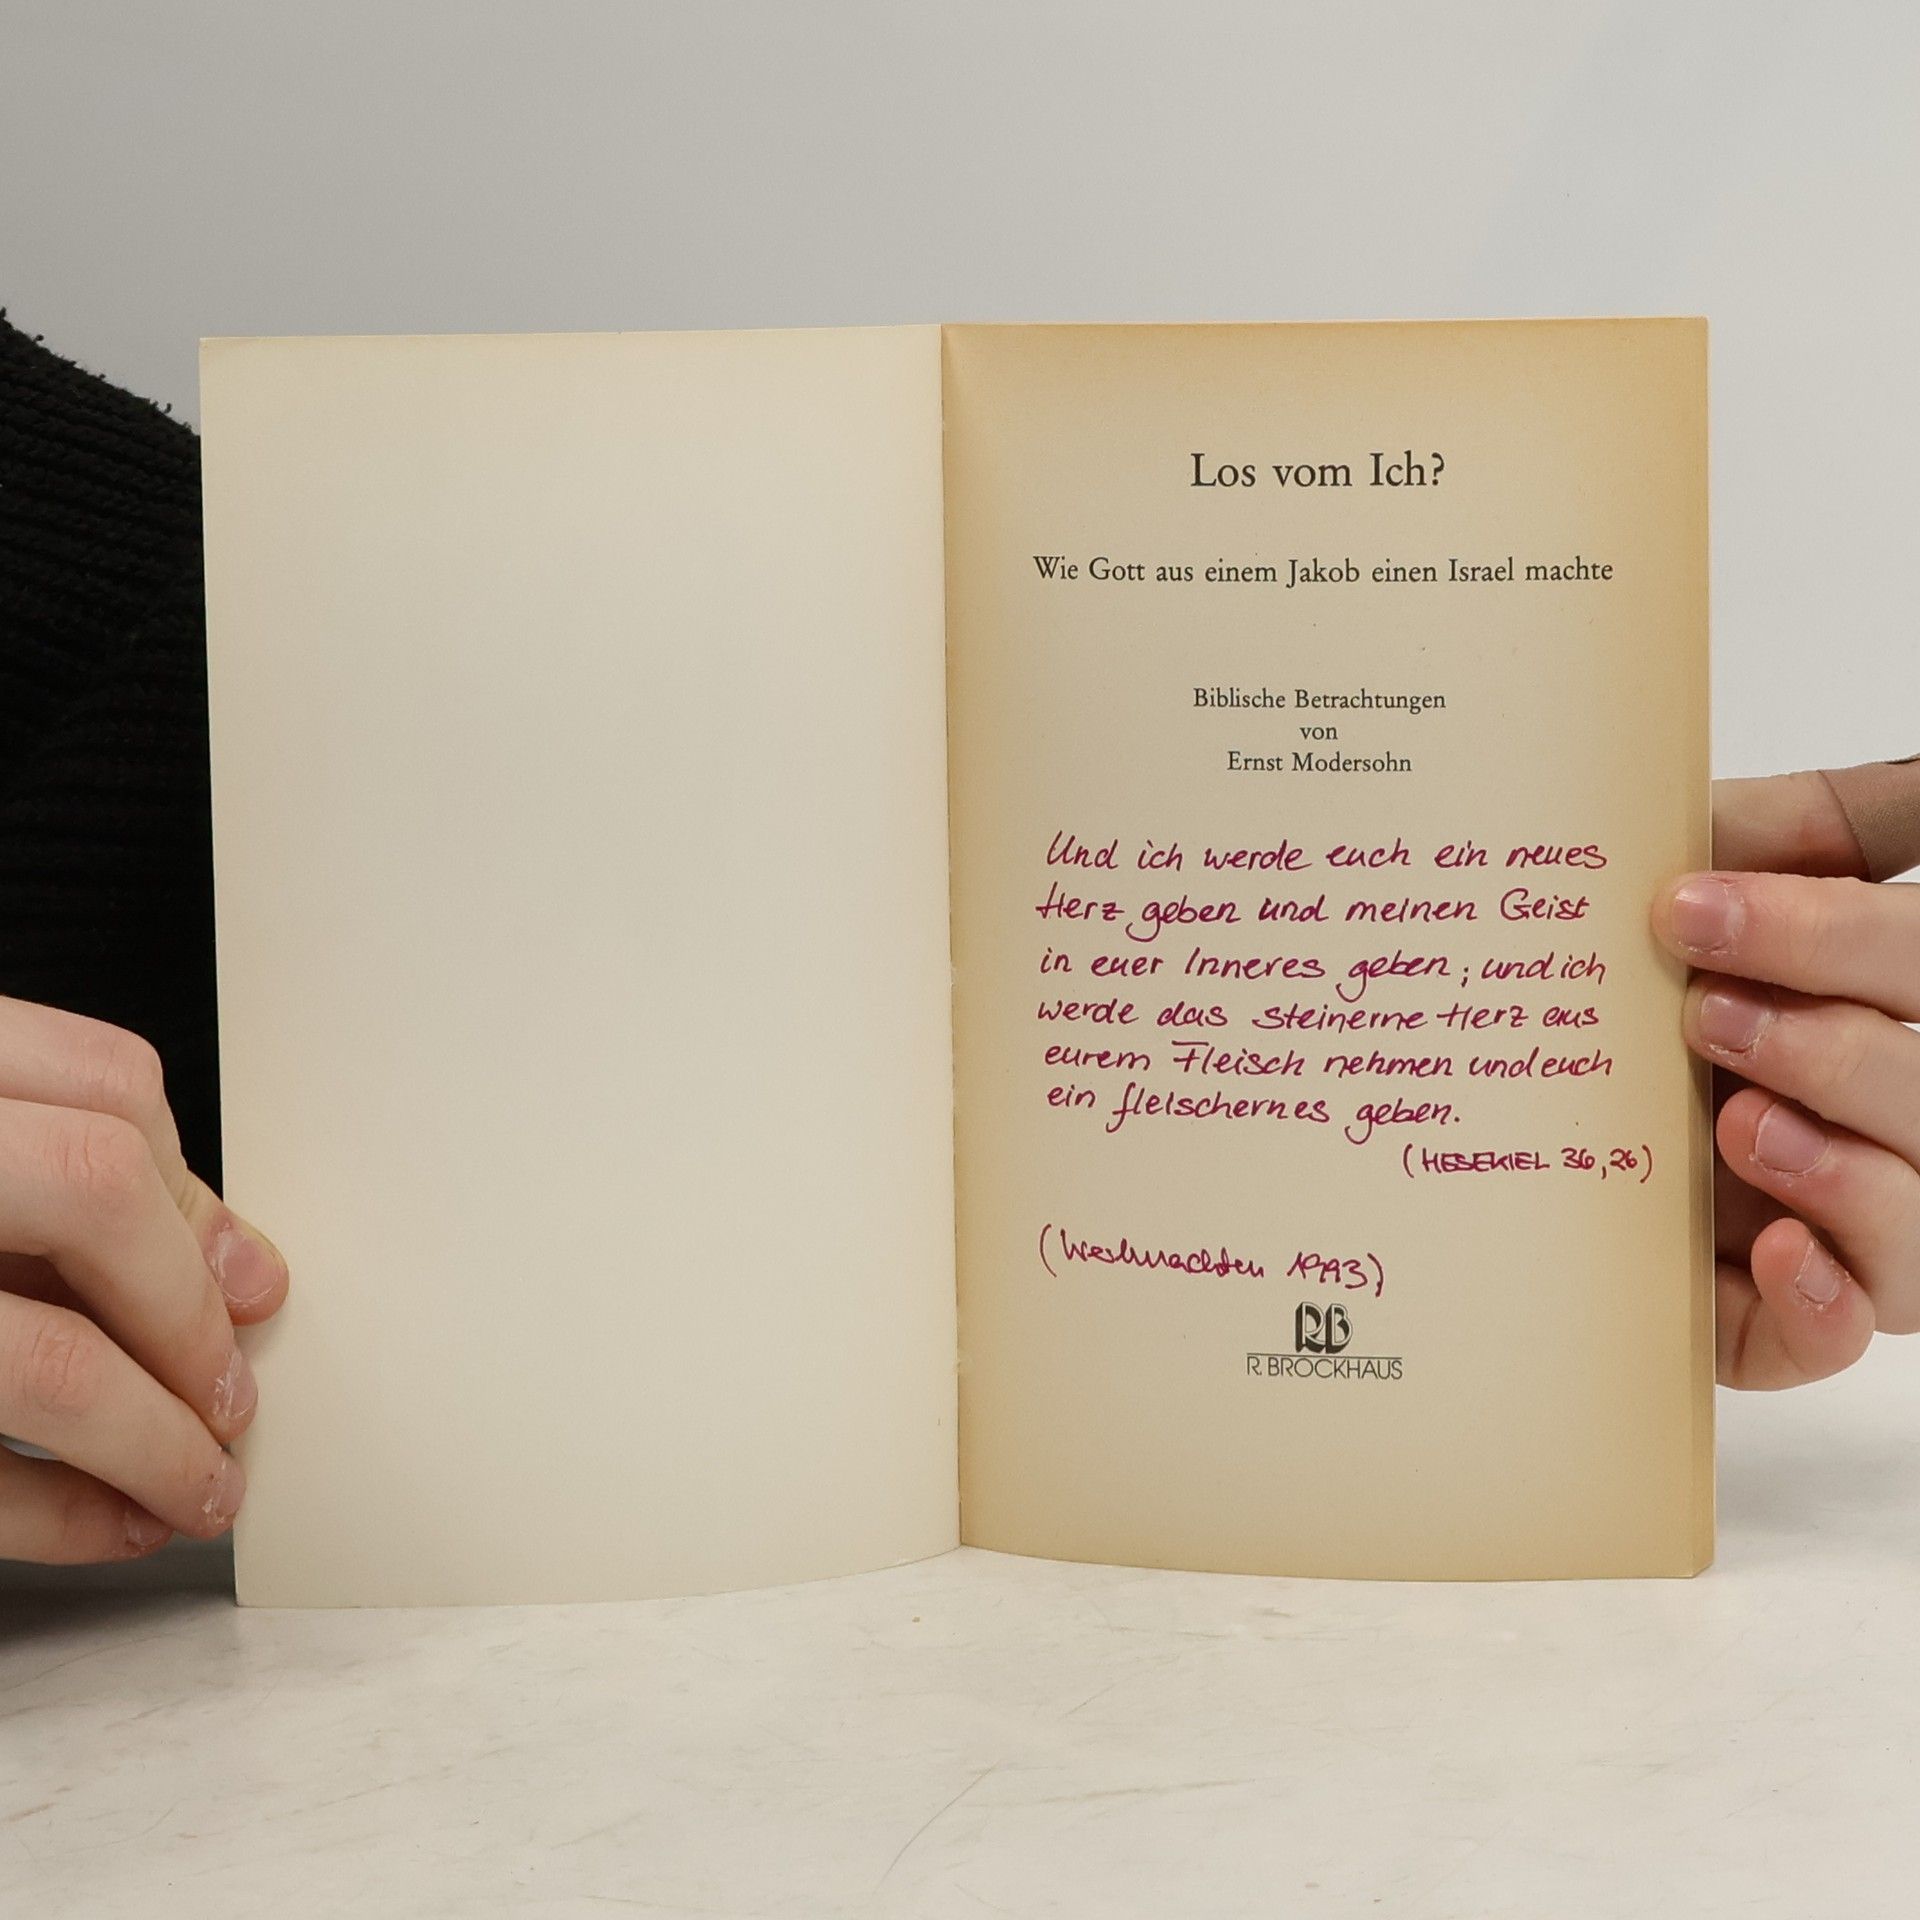 Los vom Ich?
Wie Gott aus einem Jakob einen Israel machte
Biblische Betrachtungen
von
Ernst Modersohn
Und ich werde euch ein neues
Herz geben und meinen Geist
in euer Inneres geben; und ich
werde das steinerne Herz aus
eurem Fleisch nehmen und euch
ein fleischernes geben.
(HESEKIEL 36,26)
(Weihnachten 1993)
RB
R. BROCKHAUS